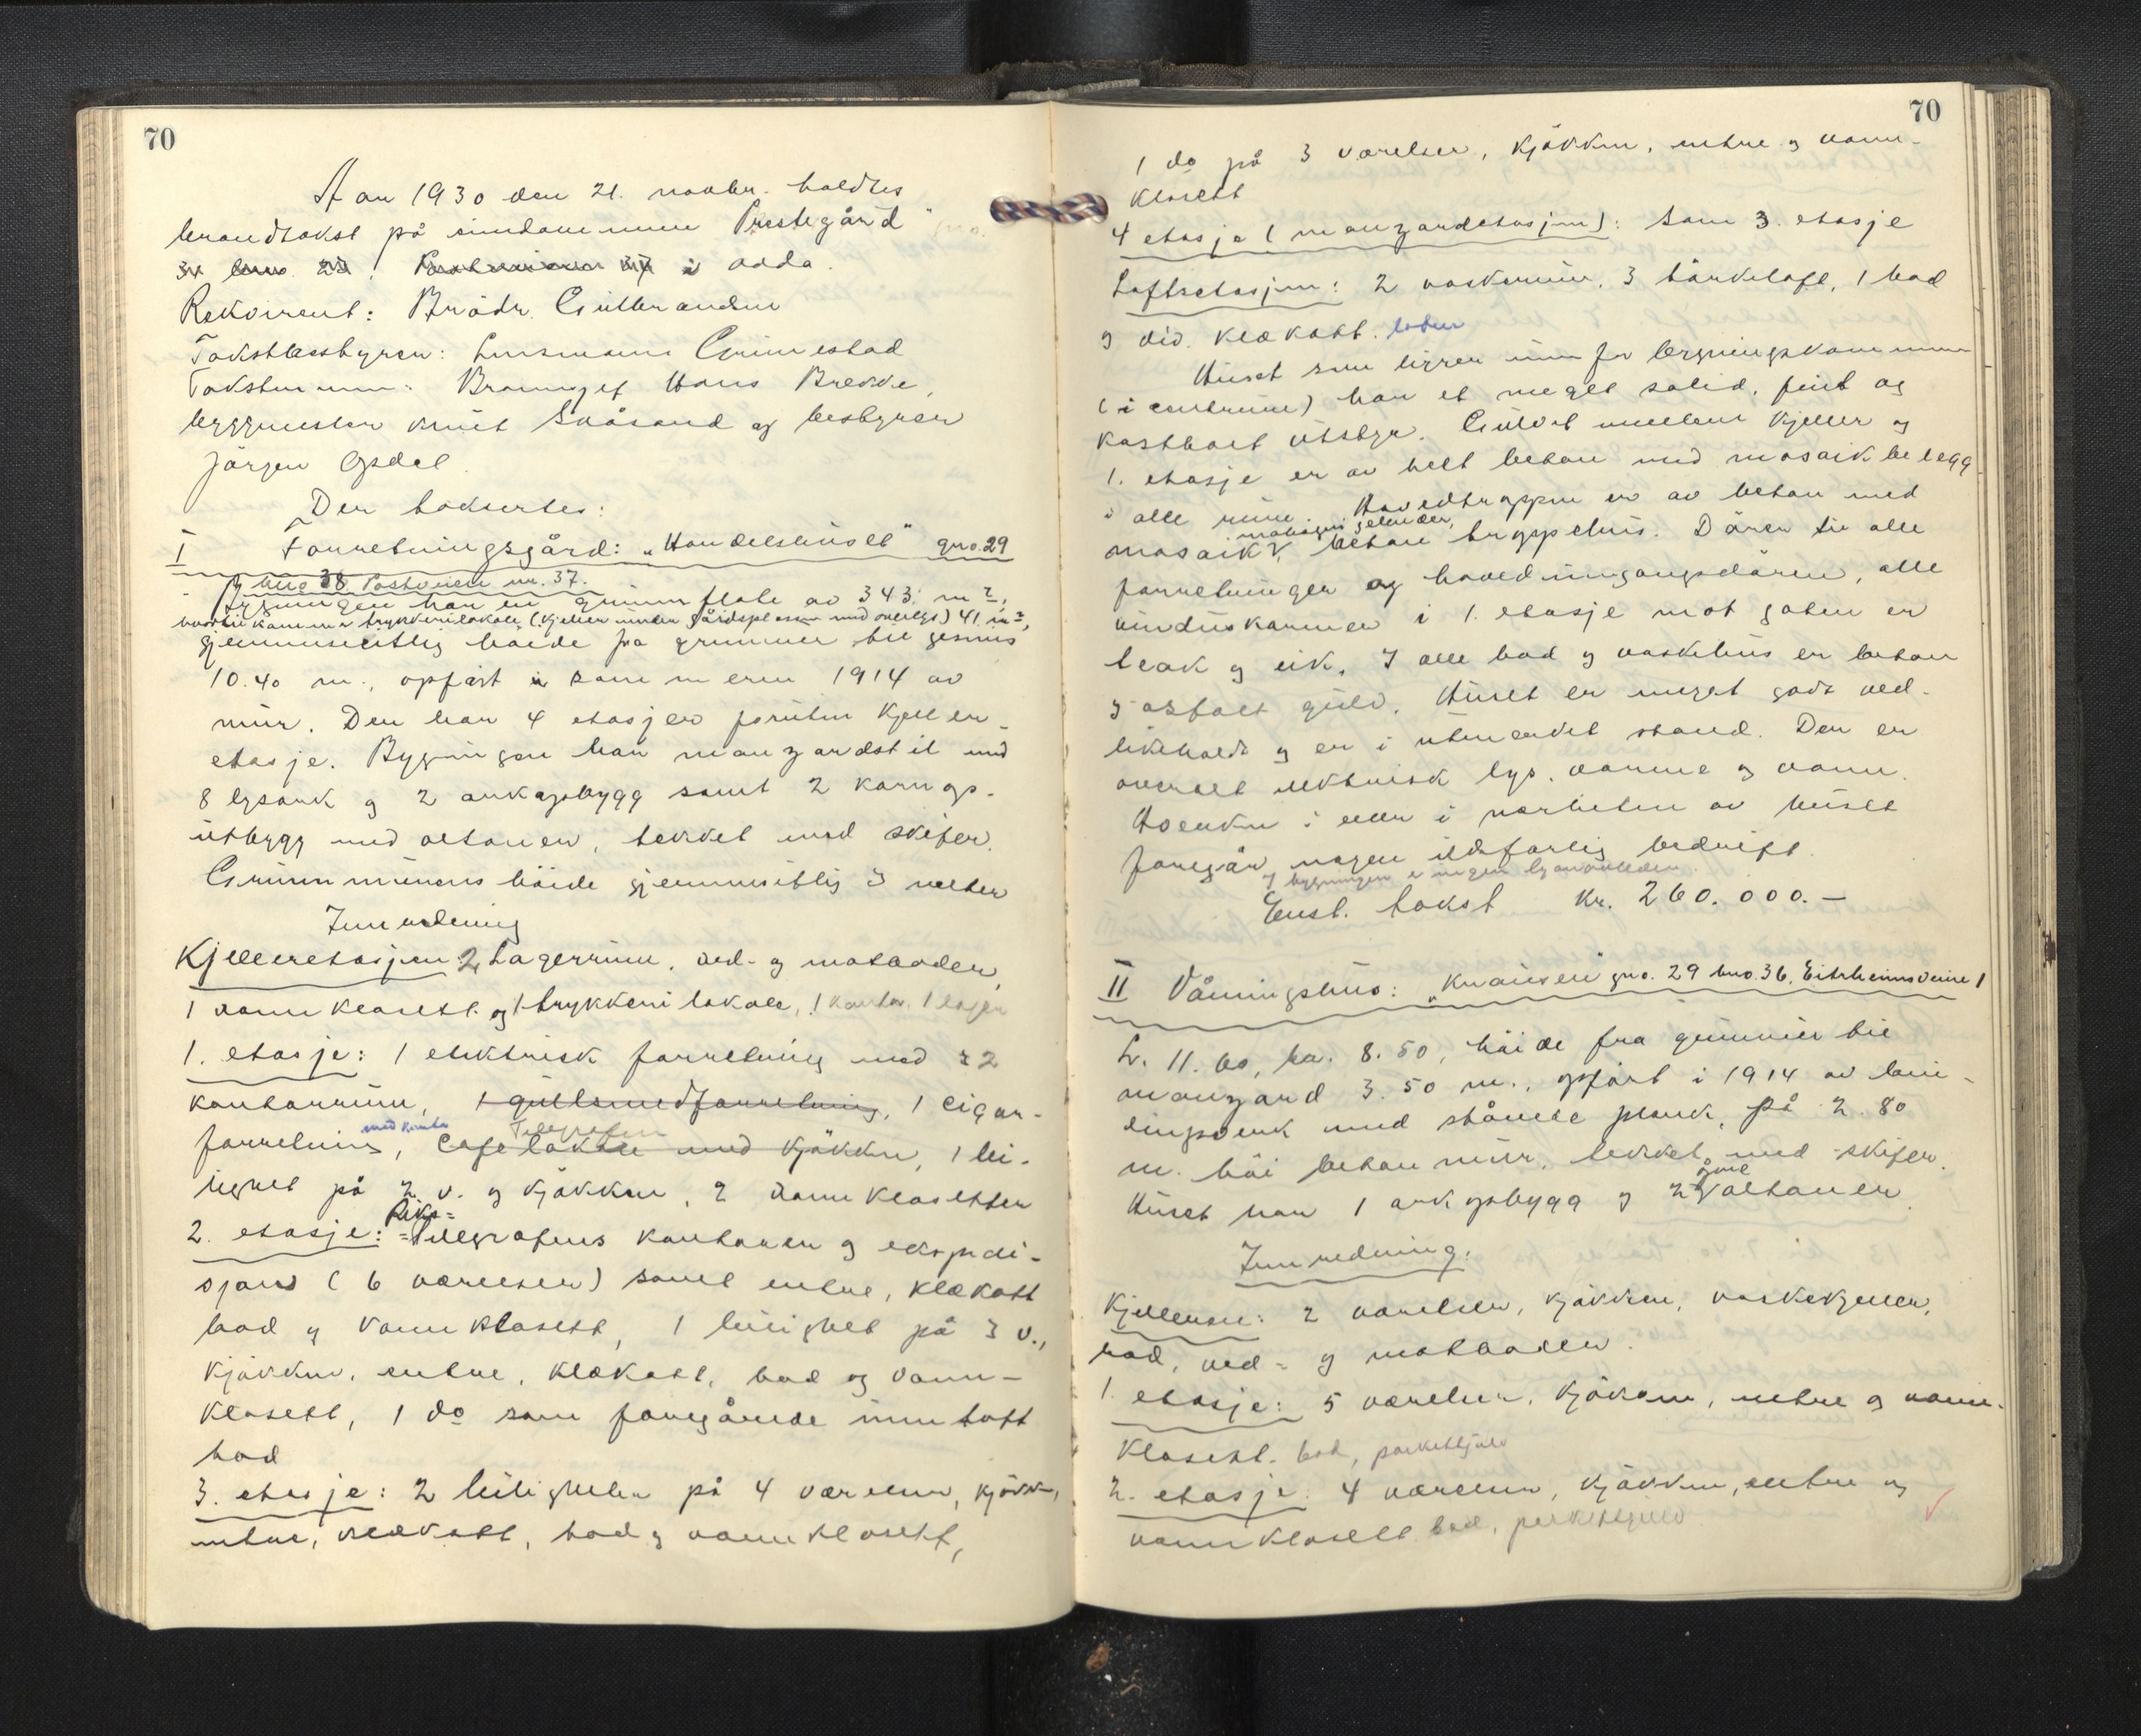 70
Aar 1930 den 21. novbr. holdtes
brandtakst på eiendommen Prestegård
i Odda.
Rekvirent: Brödr. Gulbrandsen
Takstbestyrer: Lensmann Grimestad
Takstmenn: Branngsj Hans Brekke,
byggmester Knut Skåsand og bestyrer
Jörgen Opdal.
Der takseres:
I Forretningsgård: "Handelshuset" gno. 29
bno 38 Postveien nr. 37.
Bygningen har en grunnflate av 343 m²,
hvortil kommer trykkerilokale (kjeller under gårdsplassen med overlys) 41 m²,
gjennemsnitlig høide fra grunnmur til gesims
10.40 m., opfört i sommeren 1914 av
mur. Den har 4 etasjer foruten kjeller-
etasje. Bygningen har manzardstil med
8 lysark og 2 arkopbygg samt 2 karnap-
utbygg med altaner, tekket med skifer.
Grunnmurens höide gjennemsnitlig 3 meter
Innredning
Kjelleretasjen: 2 Lagerrum, ved- og matboder,
1 vannklosett og 1 trykkerilokale, 1 kontor 1 lager
1. etasje: 1 elektrisk forretning med 2
kontorrum, 1 gullsmedforretning, 1 cigar-
med kontor Telegrafen
forretning, Cafelokale med kjökken, 1 lei-
lighet på 2 v. og kjökken, 2 vannklosetter
Riks=
2. etasje: =Telegrafens kontorer og ekspedi-
sjon (6 værelser) samt entre, klækott
bad og vannklosett, 1 leilighet på 3 v.,
kjökken, entre, klækott, bad og vann-
klosett, 1 do som foregående unntatt
bad
3. etasje: 2 leiligheter på 4 værelser, kjökken,
entre, klækott, bad og vannklosett,
70
1 do på 3 værelser, kjökken, entre og vann-
klosett
4 etasje (manzardetasjen): Som 3. etasje
Loftsetasjen: 2 vaskerum, 3 törkeloft, 1 bad
og div. klækott. boder
Huset som ligger innenfor bygningskommunen
(i centrum) har et meget solid, fint og
kostbart utstyr. Gulvet mellem kjeller og
1. etasje er av helt betong med mosaikbelegg
i alle rum. Hovedtrappen er av betong med
mahogni gelender,
mosaik, betong trappehus. Dörer til alle
forretninger og hovedinngangsdören, alle
vinduskarmer i 1. etasje mot gaten er
teak og eik. I alle bad og vaskehus er betong
og asfalt gulv. Huset er meget godt ved-
likeholdt og er i utmerket stand. Der er
overalt elektrisk lys, varme og vann.
Hverken i eller i nærheten av huset
foregår nogen ildsfarlig bedrift.
og bygningen er ingen
Enst. takst Kr. 260.000.-
II Våningshus: "Knausen" gno. 29 bno. 36. Eitrheimsveien 1
L. 11.60, br. 8.50, höide fra grunnmur til
manzard 3.50 m., opfört i 1914 av bin-
dingsverk med stående plank, på 2.80
m. höi betongmur, tekket med skifer.
åpne
Huset har 1 arkopbygg og 2 altaner
Innredning.
Kjelleren: 2 værelser, kjökken, vaskekjeller,
bad, ved- og matboder.
1. etasje: 5 værelser, kjökken, entre og vann-
klosett. bad, parkettgulv
2. etasje: 4 værelser, kjökken, entre og
vannklosett bad, parkettgulv